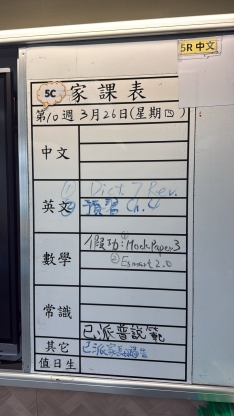 5R 中文
5C 家課表
第10週 3月26日(星期四)
中文
英文
① Dict 7 Rev.
② 預習 Ch.4
數學
假功:①Mock Paper 3
②Esmart 2.0
常識
已派普說範
其它
已派家長通告
值日生